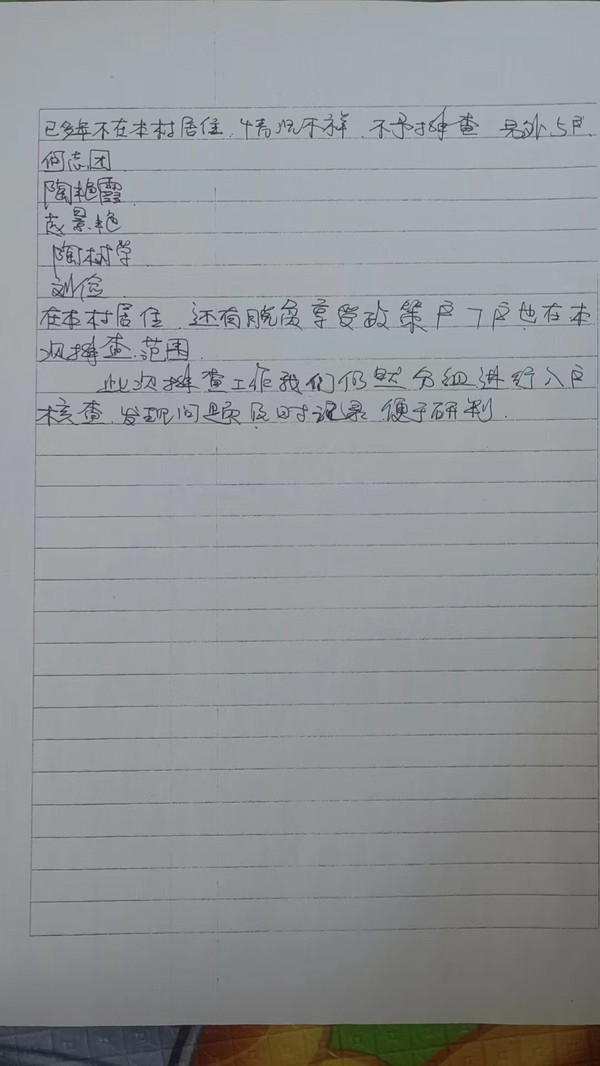 已多年不在本村居住,情况不祥,不予排查 另外5户
何志团
陶艳霞
景艳
陶树学
刘俭
在本村居住,还有脱贫享受政策户7户也在本
次排查范围.
此次排查工作我们仍然分组进行入户
核查,发现问题及时记录 便于研判.